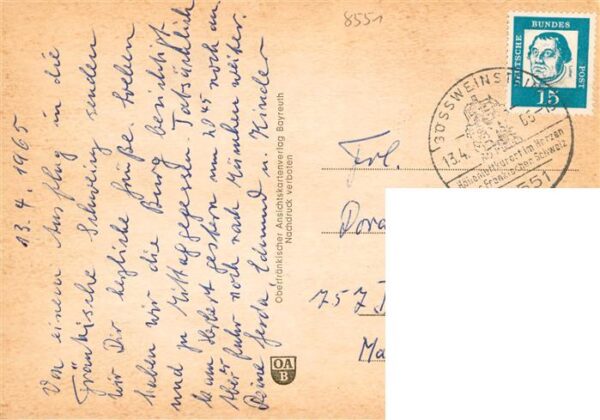 8551
13.4.1965
Von einem Ausflug in die
Fränkische Schweiz senden
wir Dir herzliche Grüße. Soeben
haben wir die Burg besichtigt
und zu Mittag gegessen. Tatsächlich
kam Herbert gestern um 20 45 noch an.
Aber fuhr noch nach München weiter.
Deine Gerda, Edmund u. Kinder
Oberfränkischer Ansichtskartenverlag Bayreuth
Nachdruck verboten
OA
B
DEUTSCHE BUNDES POST
15
GÖSSWEINST
13.4.
Höhenluftkurort im Herzen
Fränkischer Schweiz
551
Frl.
Dora
757
Ma